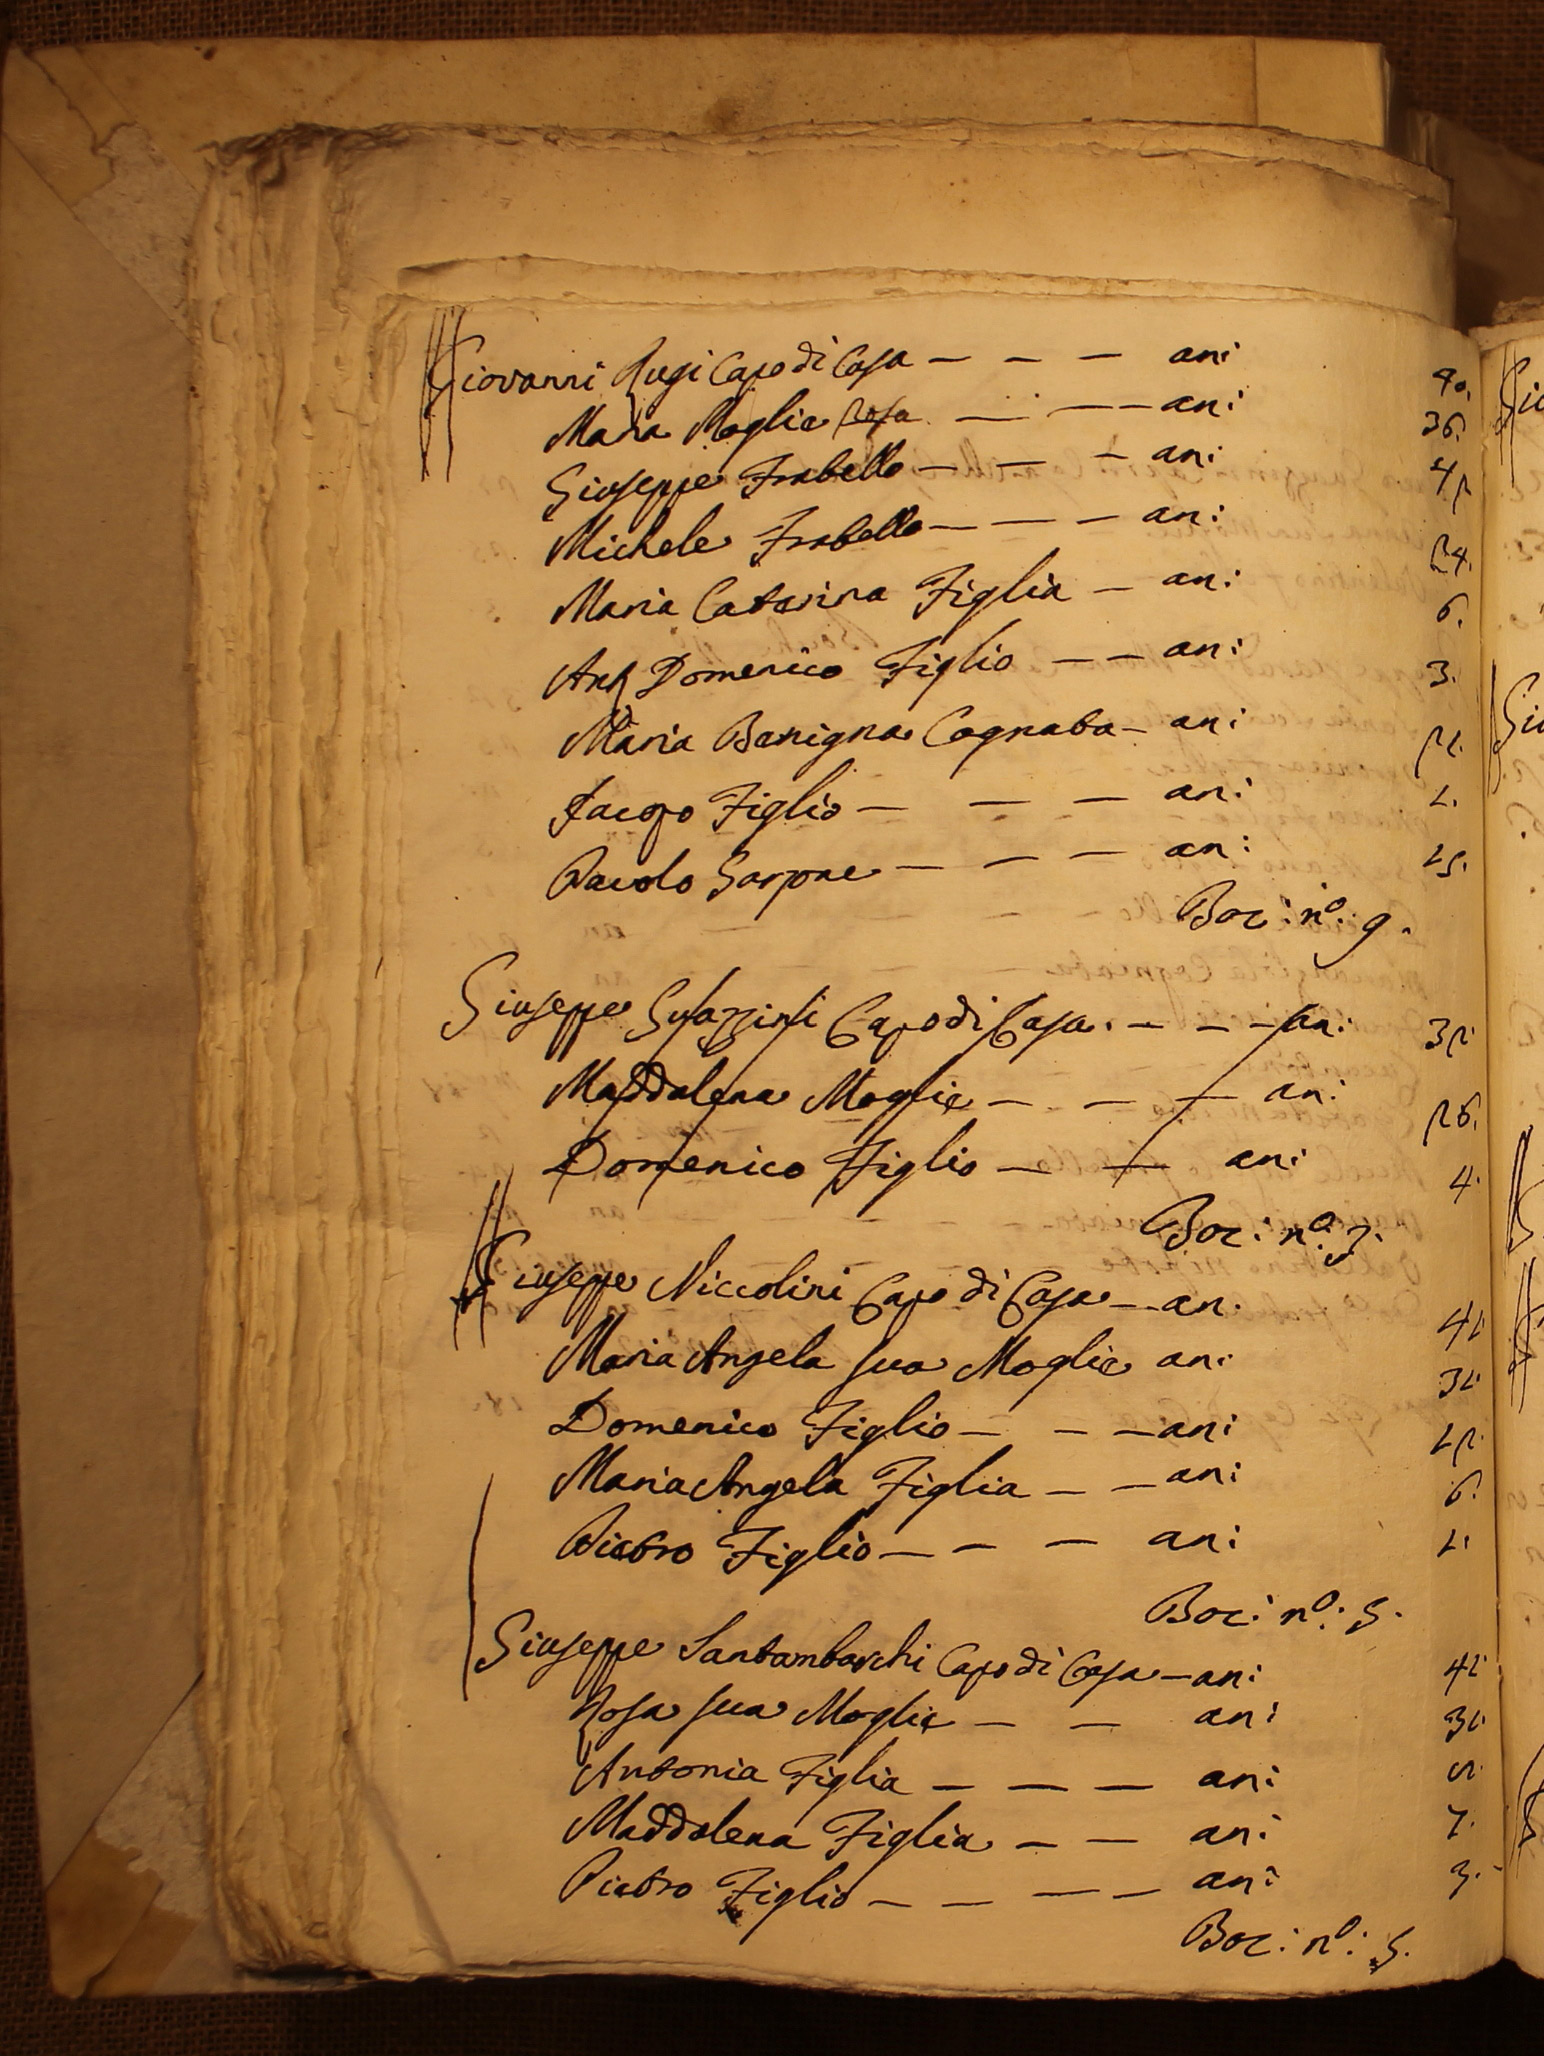 Giovanni Rugi Capo di Casa — — — ani 40.
Maria Moglie Rosa — — — ani 36.
Giuseppe Fratello — — — ani 42
Michele Fratello — — — ani 24.
Maria Catarina Figlia — ani 6.
Ant Domenico Figlio — — ani 3.
Maria Benigna Cognata — ani 21.
Jacopo Figlio — — — ani 1.
Pavolo Garzone — — — ani 15.
Boc: nº: 9.
Giuseppe Capo di Casa. — — — ani 32
Maddalena Moglie — — — ani 26.
Domenico Figlio — — ani 4.
Boc: nº: 3.
Giuseppe Niccolini Capo di Casa — an. 41
Maria Angela sua Moglie ani 31
Domenico Figlio — — — ani 12.
Maria Angela Figlia — — ani 6.
Pietro Figlio — — — ani 1.
Boc: nº: 5.
Giuseppe Santambarchi Capo di Casa — ani 41
Rosa sua Moglie — — ani 31
Antonia Figlia — — — ani
Maddalena Figlia — — ani 7.
Pietro Figlio — — — — ani 3.
Boc: nº: 5.